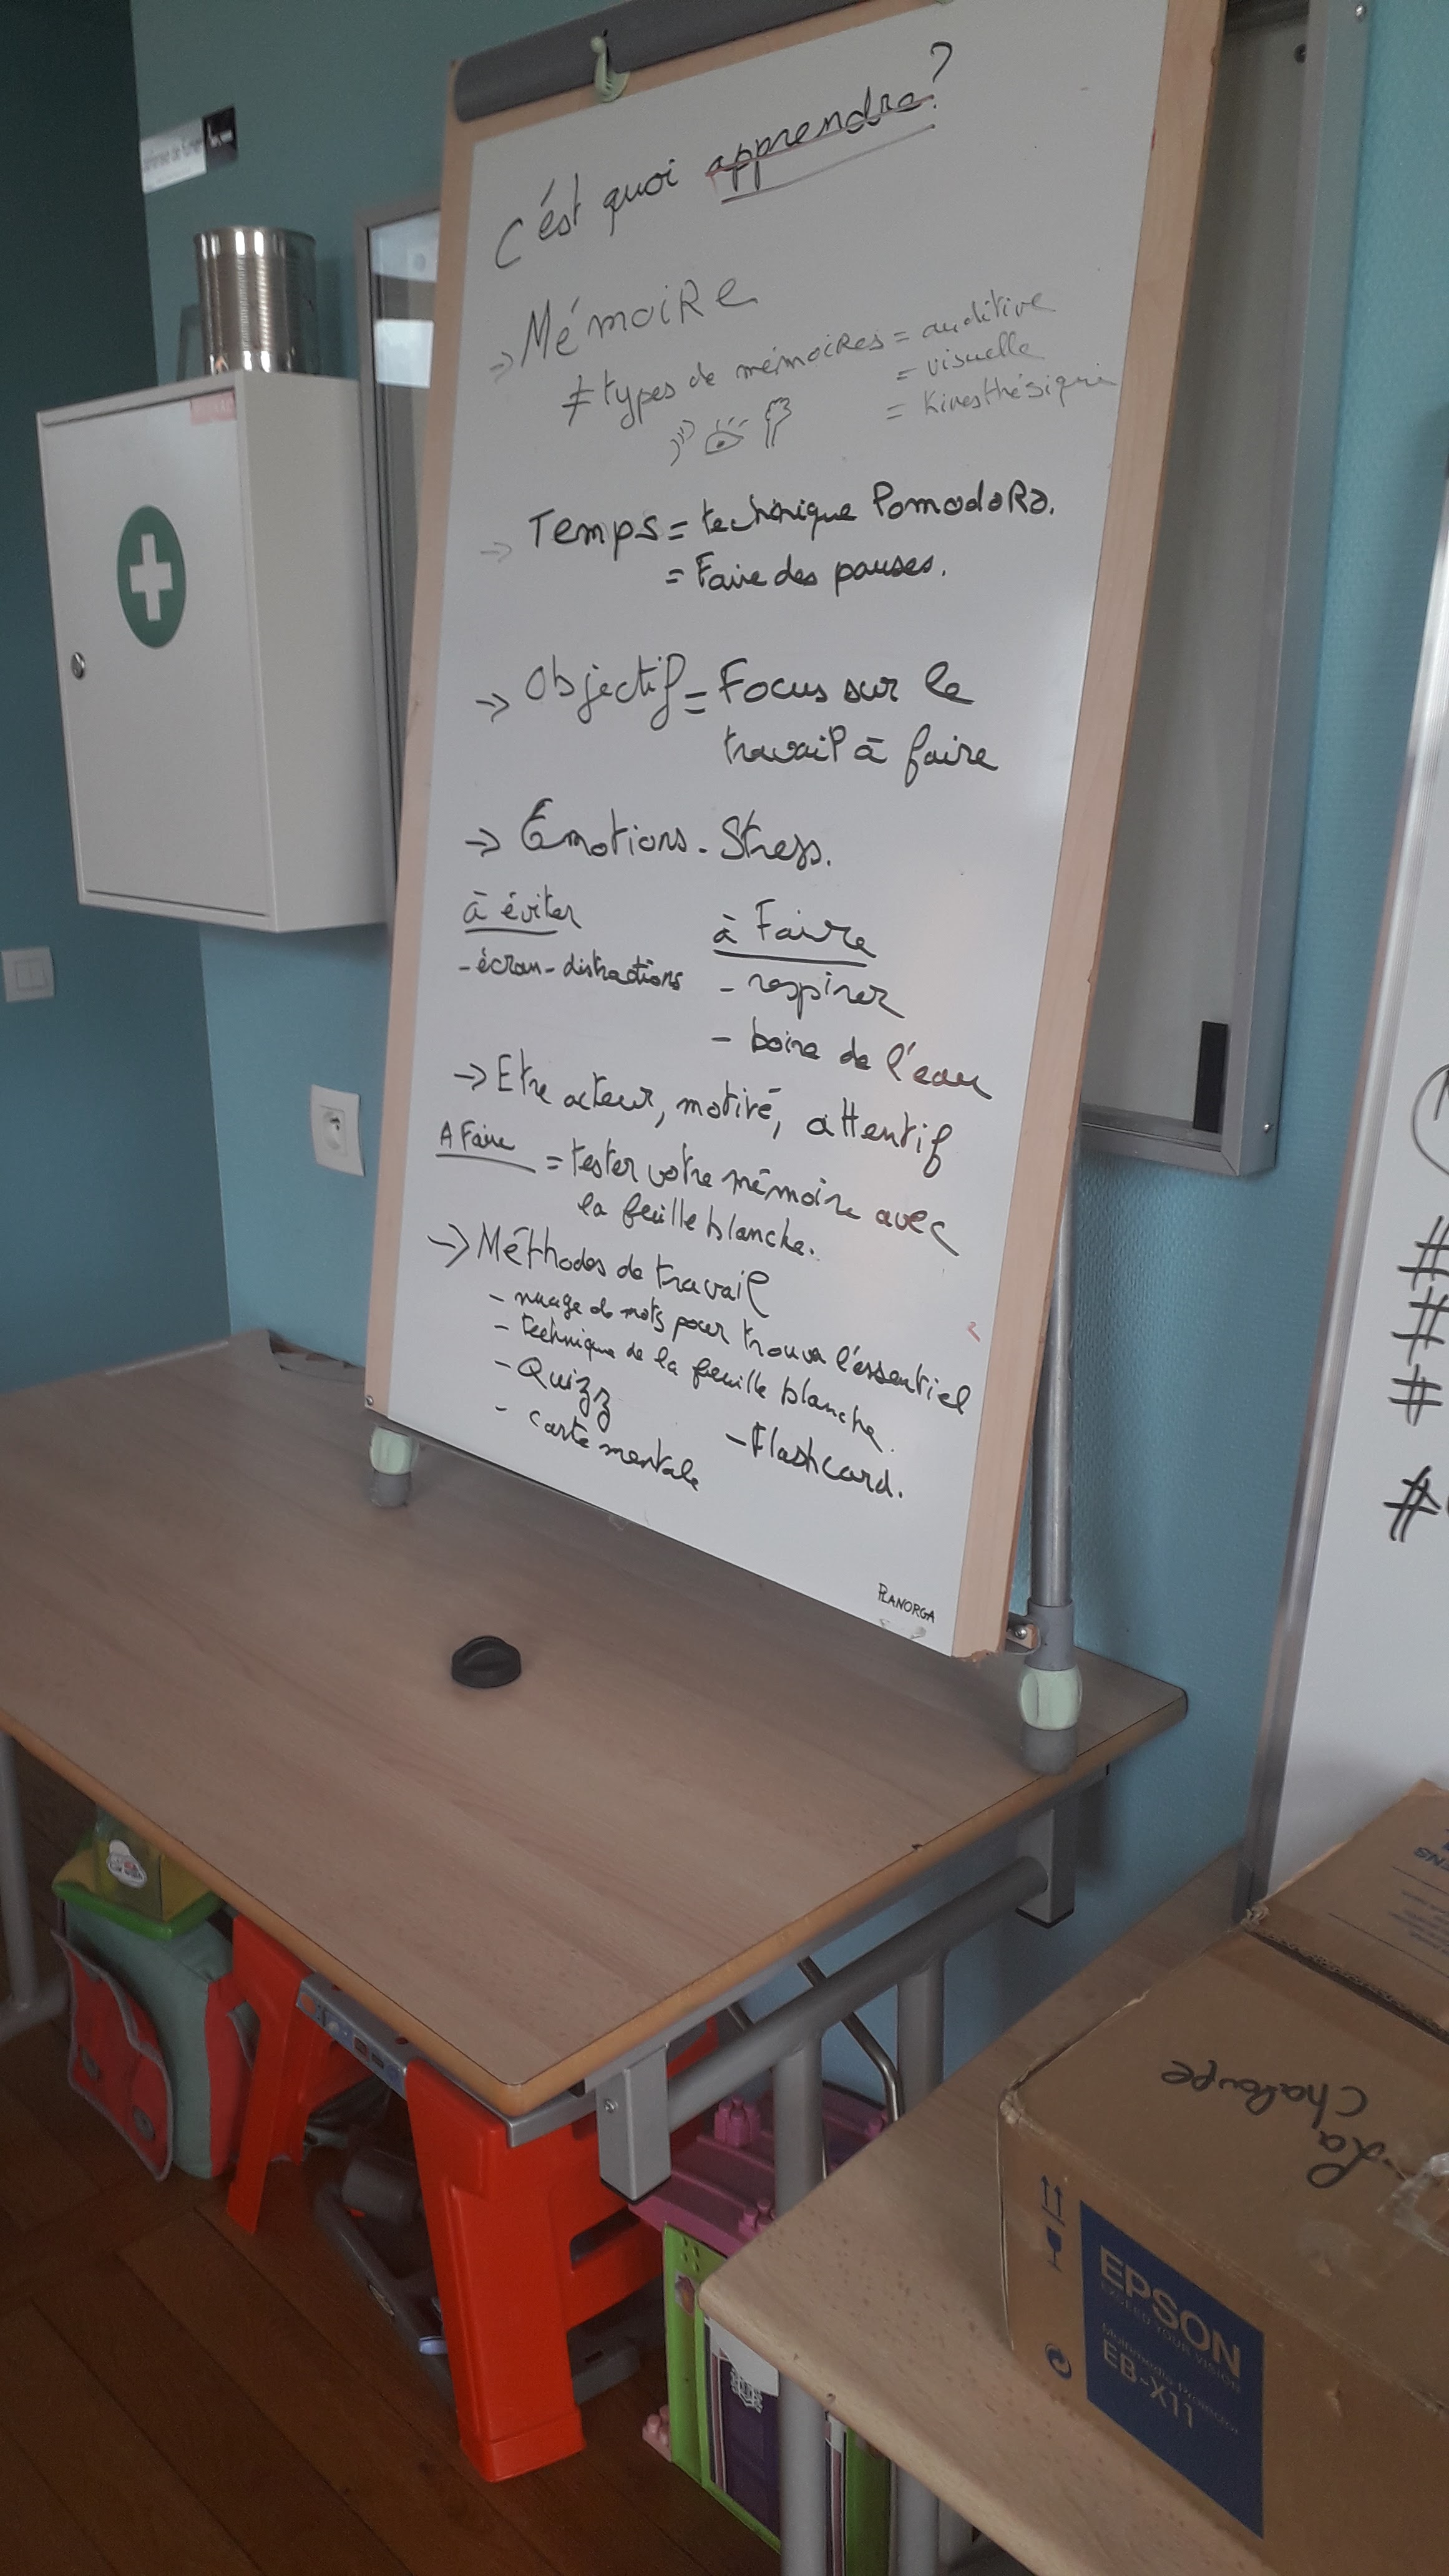 C'est quoi apprendre?
→ Mémoire
≠ types de mémoires = auditive
= visuelle
= Kinesthésique
→ Temps = technique Pomodoro.
= Faire des pauses.
→ Objectif = Focus sur le
travail à faire
→ Émotions - Stress.
à éviter
- écran - distractions
à Faire
- respirer
- boire de l'eau
→ Etre acteur, motivé, attentif
A Faire = tester votre mémoire avec
la feuille blanche.
→ Méthodes de travail
- nuage de mots pour trouver l'essentiel
- technique de la feuille blanche.
- Quizz
- carte mentale
- Flashcard.
PLANORGA
#
#
#
#
La
Chaloupe
EPSON
EXCEED YOUR VISION
Multimedia Projector
EB-X11